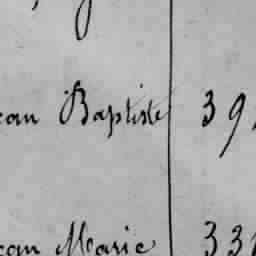 ean Baptiste 39
ean Marie 33